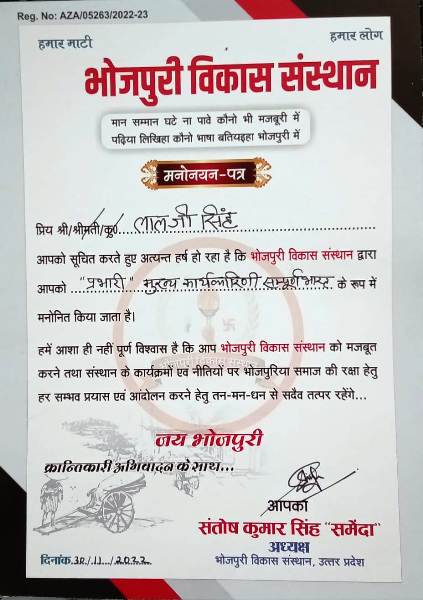 Reg. No: AZA/05263/2022-23
हमार माटी हमार लोग
भोजपुरी विकास संस्थान
मान सम्मान घटे ना पावे कौनो भी मजबूरी में
पढ़िया लिखिहा कौनो भाषा बतियइहा भोजपुरी में
मनोनयन-पत्र
प्रिय श्री/श्रीमती/कु० लालजी सिंह
आपको सूचित करते हुए अत्यन्त हर्ष हो रहा है कि भोजपुरी विकास संस्थान द्वारा
आपको "प्रभारी" मुख्य कार्यकारिणी सम्पूर्ण भारत के रूप में
मनोनित किया जाता है।
हमें आशा ही नहीं पूर्ण विश्वास है कि आप भोजपुरी विकास संस्थान को मजबूत
करने तथा संस्थान के कार्यक्रमों एवं नीतियों पर भोजपुरिया समाज की रक्षा हेतु
हर सम्भव प्रयास एवं आंदोलन करने हेतु तन-मन-धन से सदैव तत्पर रहेंगे...
भोजपुरी विकास संस्थान
जय भोजपुरी
क्रान्तिकारी अभिवादन के साथ...
आपका
संतोष कुमार सिंह "समेंदा"
अध्यक्ष
दिनांक 30/11/2022 भोजपुरी विकास संस्थान, उत्तर प्रदेश